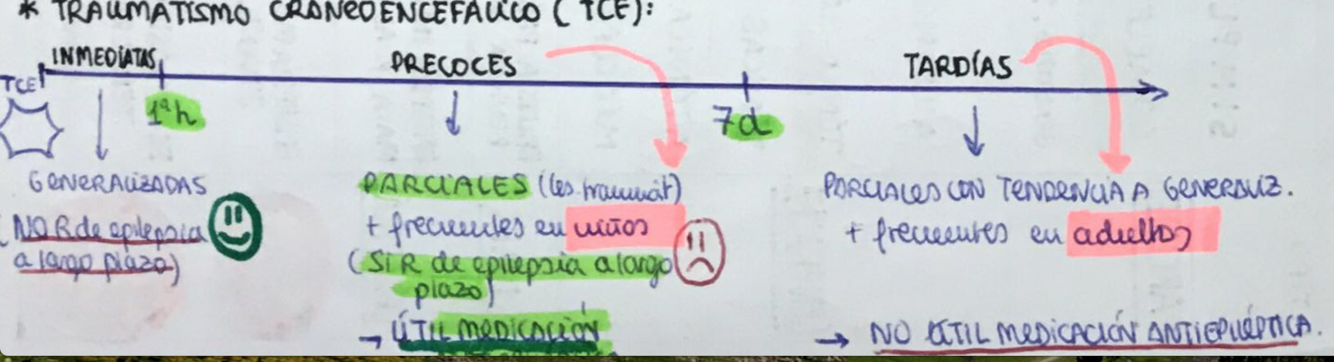 * TRAUMATISMO CRANEOENCEFÁLICO (TCE):
INMEDIATAS PRECOCES TARDÍAS
TCE
1ªh 7d
GENERALIZADAS PARCIALES (les traumát) PARCIALES CON TENDENCIA A GENERALIZ.
(NO R de epilepsia + frecuentes en niños + frecuentes en adultos
a largo plazo) (SI R de epilepsia a largo
plazo)
→ ÚTIL MEDICACIÓN → NO ÚTIL MEDICACIÓN ANTIEPILÉPTICA.